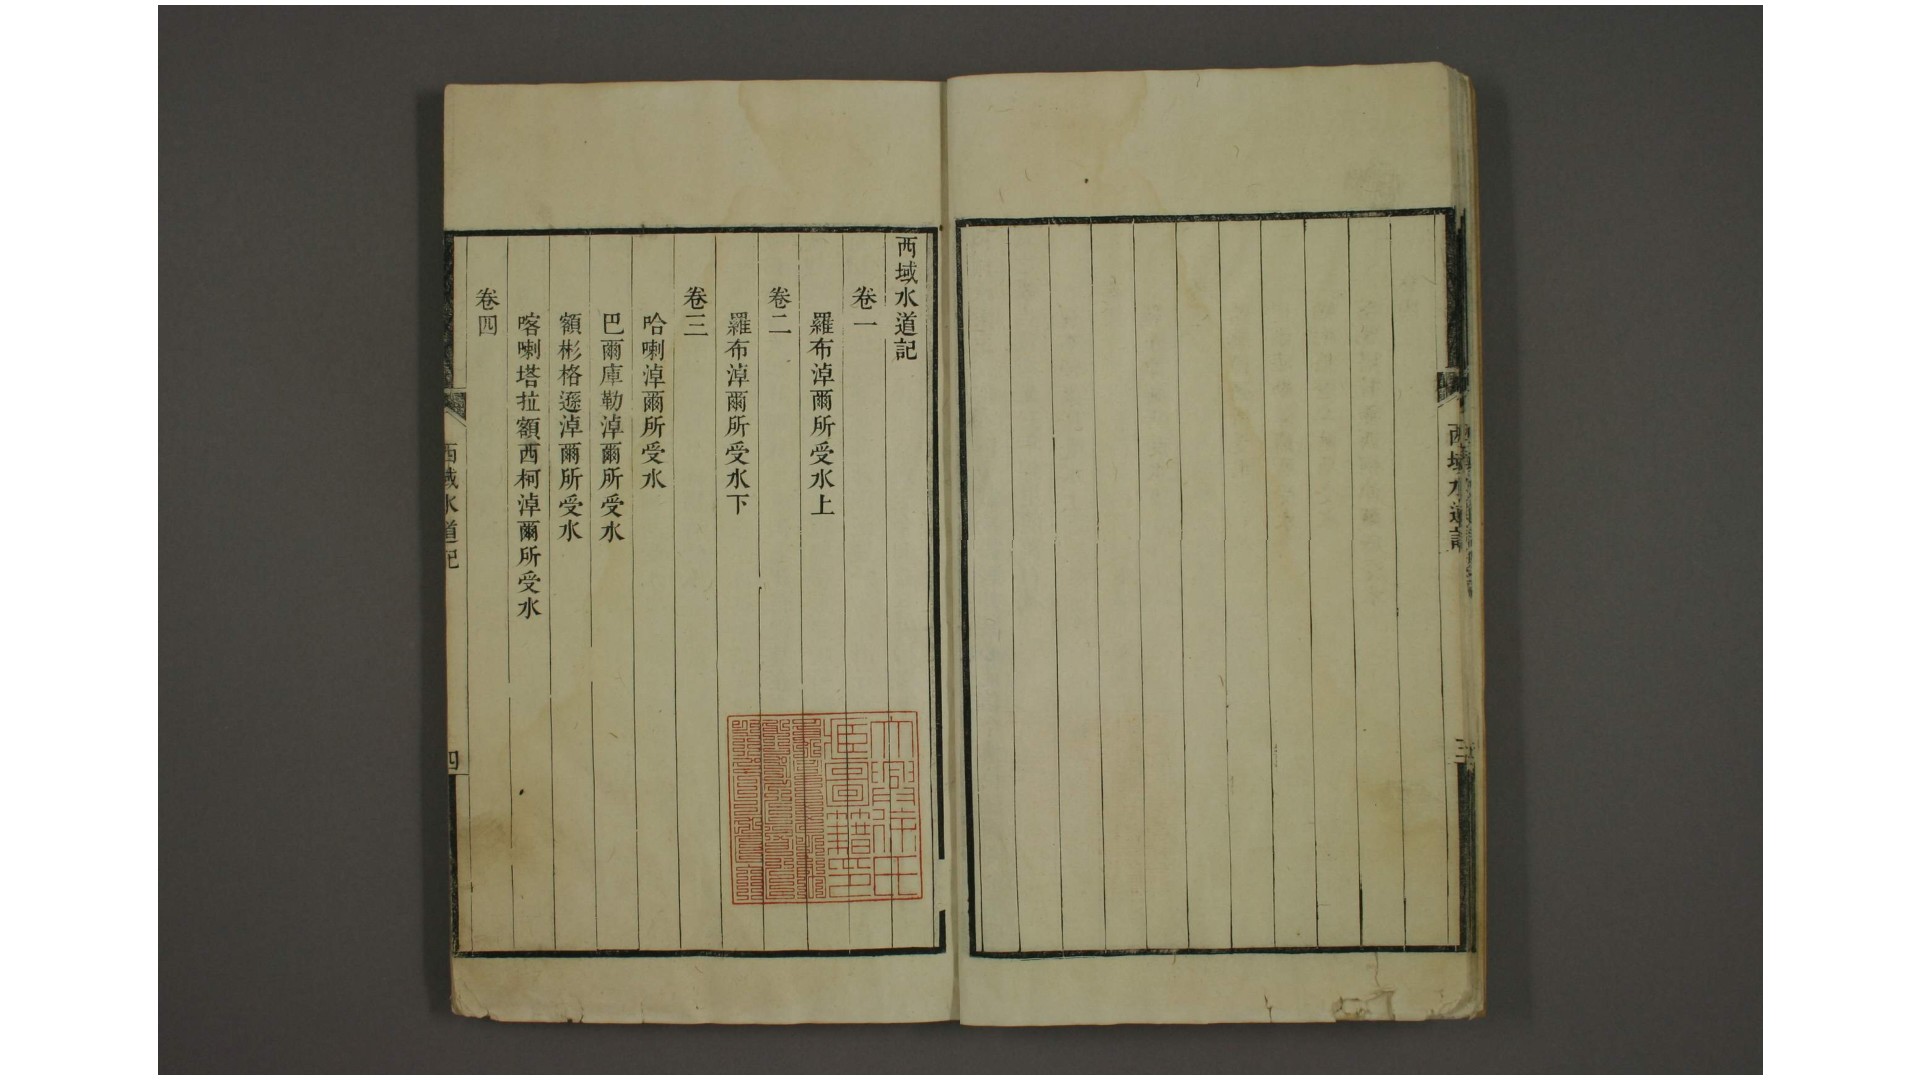 西域水道記
三
西域水道記
卷一
羅布淖爾所受水上
卷二
羅布淖爾所受水下
卷三
哈喇淖爾所受水
巴爾庫勒淖爾所受水
額彬格遜淖爾所受水
喀喇塔拉額西柯淖爾所受水
卷四
西域水道記
四
大興徐氏
臧圖籍印